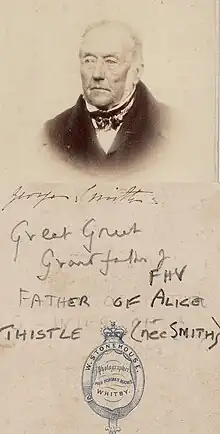 George Smith
Great Great
Grandfather of
FHV
FATHER OF ALICE
THISTLE (nee SMITH)
W. STONEHOUSE,
Photographer
WHITBY.